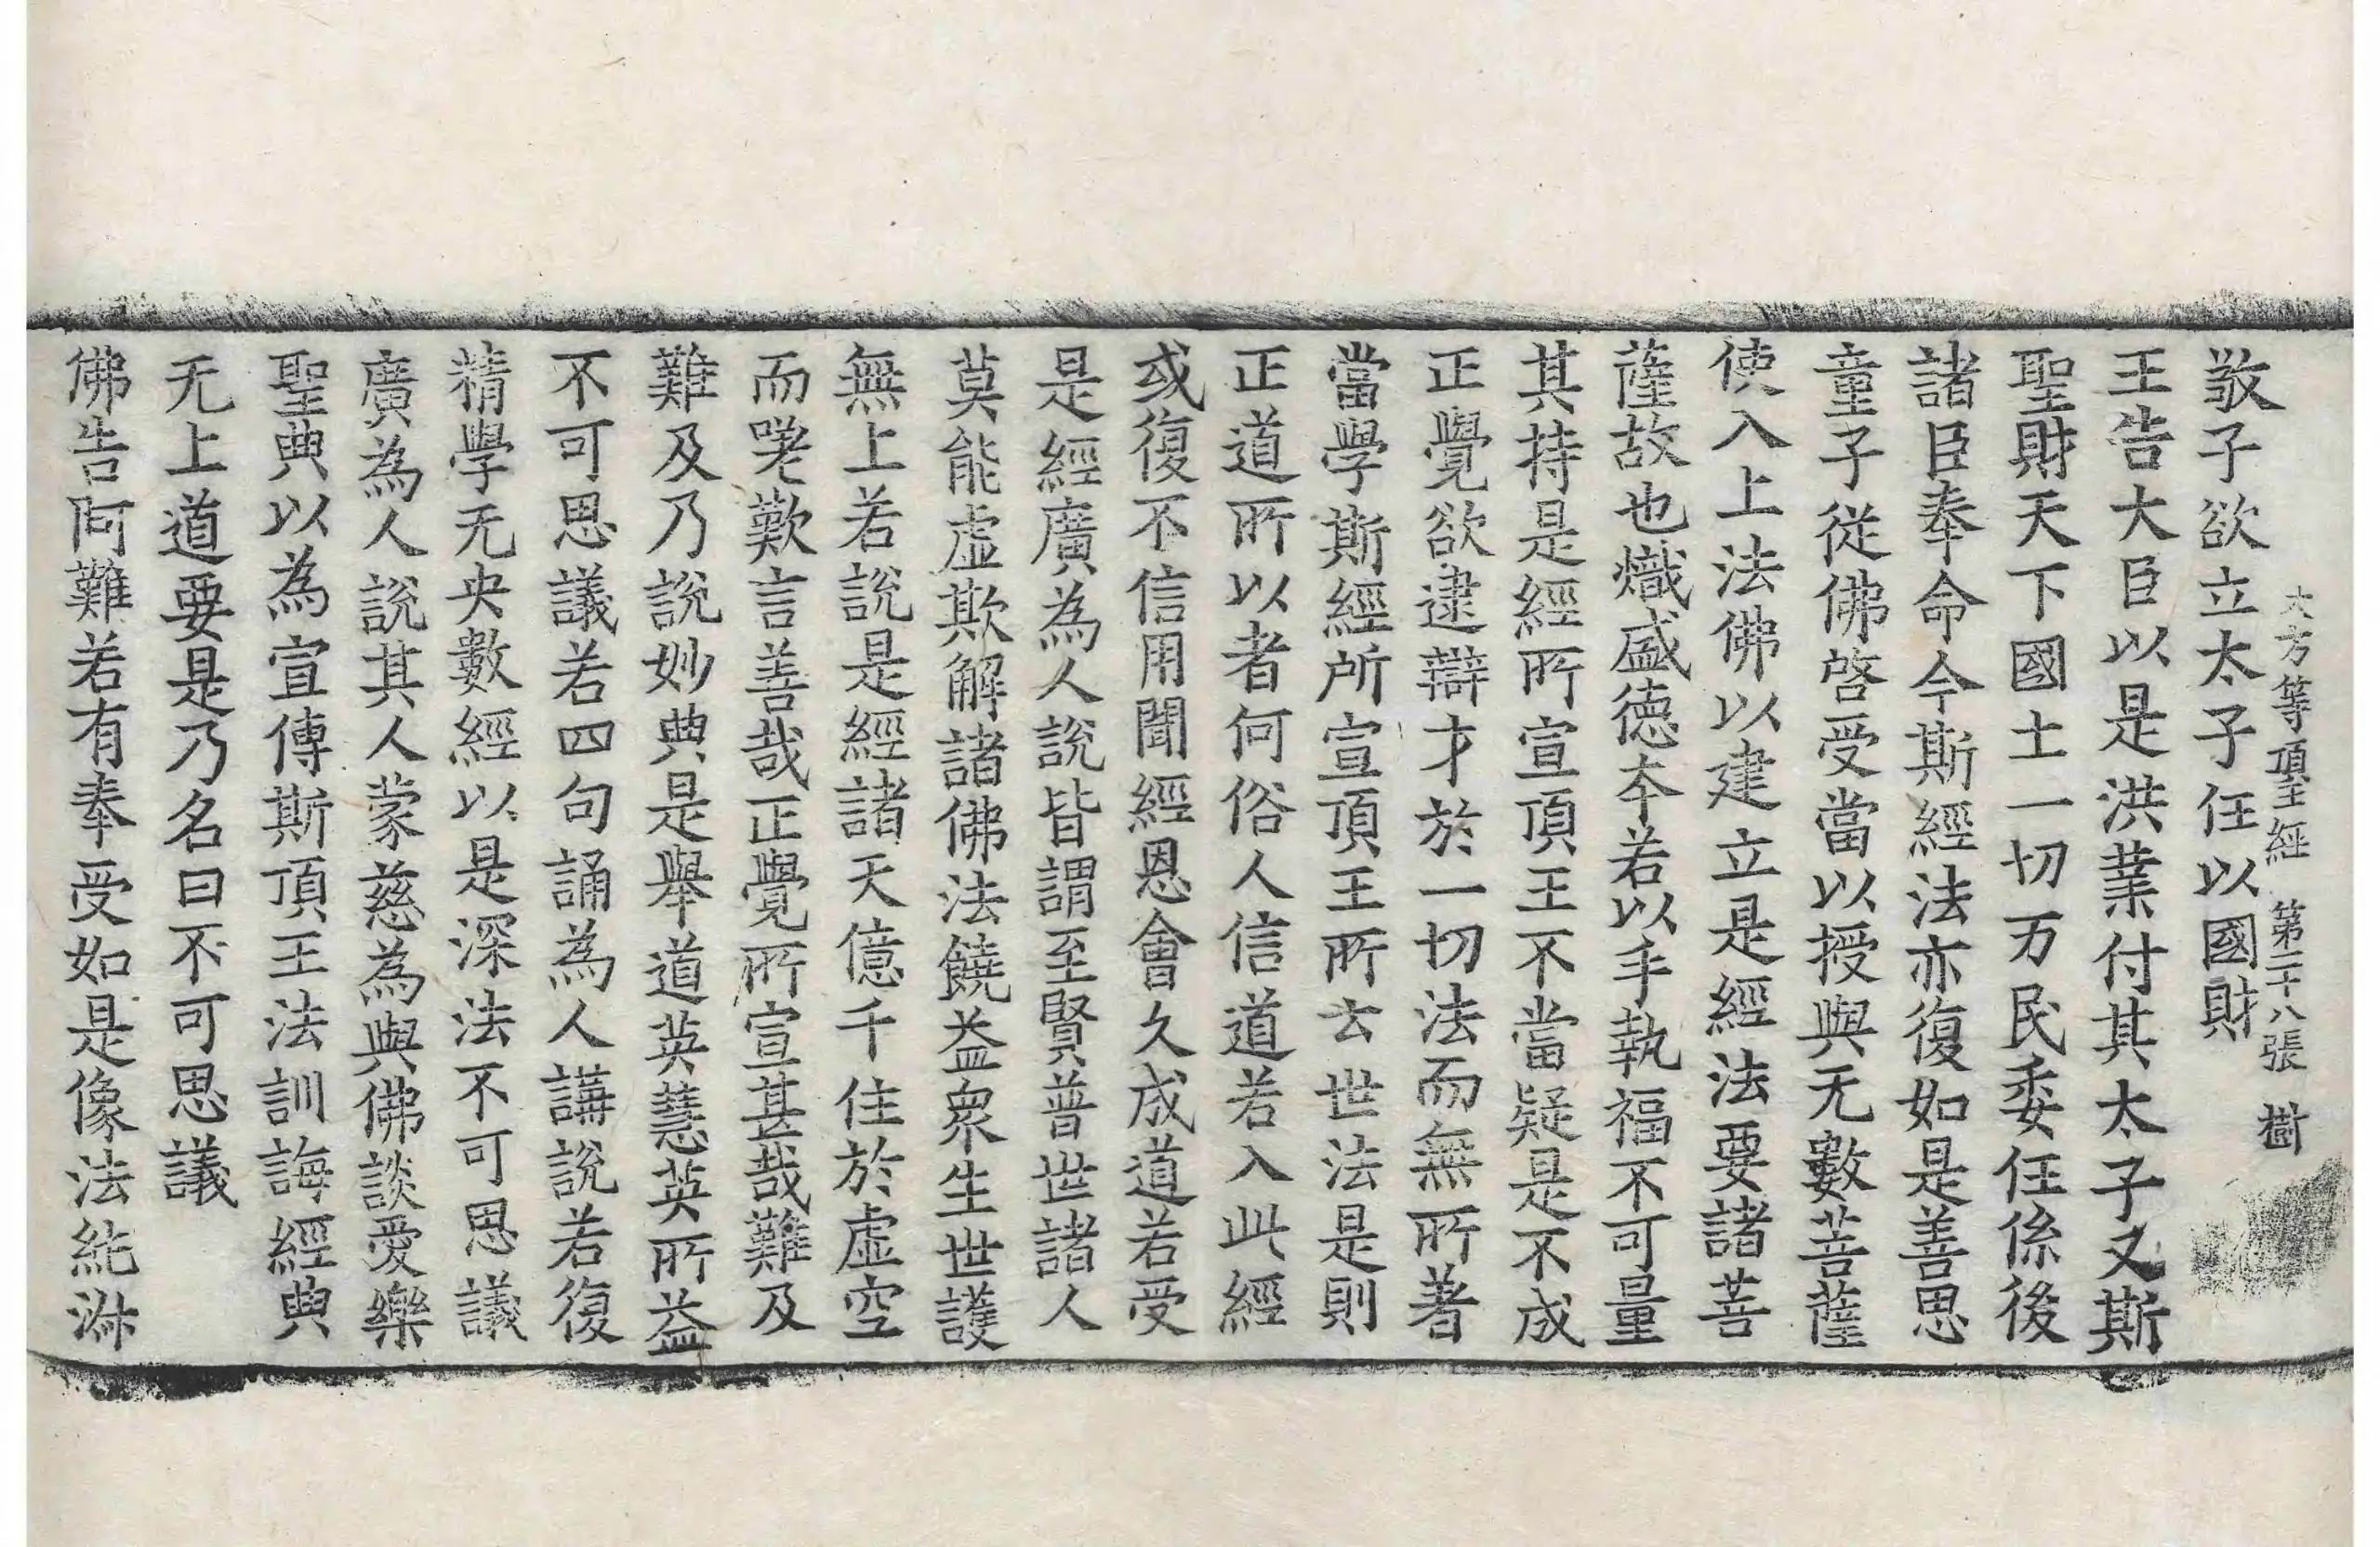 大方等頂王經 第二十八張 樹
敬子欲立太子任以國財
王告大臣以是洪業付其太子又斯
聖財天下國土一切万民委任係後
諸臣奉命今斯經法亦復如是善思
童子從佛啓受當以授與无數菩薩
使入上法佛以建立是經法要諸菩
薩故也熾盛德夲若以手執福不可量
其持是經所宣頂王不當疑是不成
正覺欲逮辯才於一切法而無所著
當學斯經所宣頂王所去世法是則
正道所以者何俗人信道若入此經
或復不信用聞經恩會久成道若受
是經廣為人說皆謂至賢普世諸人
莫能虛欺解諸佛法饒益衆生世護
無上若說是經諸天億千住於虛空
而咲歎言善哉正覺所宣甚哉難及
難及乃說妙典是舉道英慧英所益
不可思議若四句誦為人講說若復
精學无央數經以是深法不可思議
廣為人說其人蒙慈為與佛談愛樂
聖典以為宣傳斯頂王法訓誨經典
无上道要是乃名曰不可思議
佛告阿難若有奉受如是像法純淑